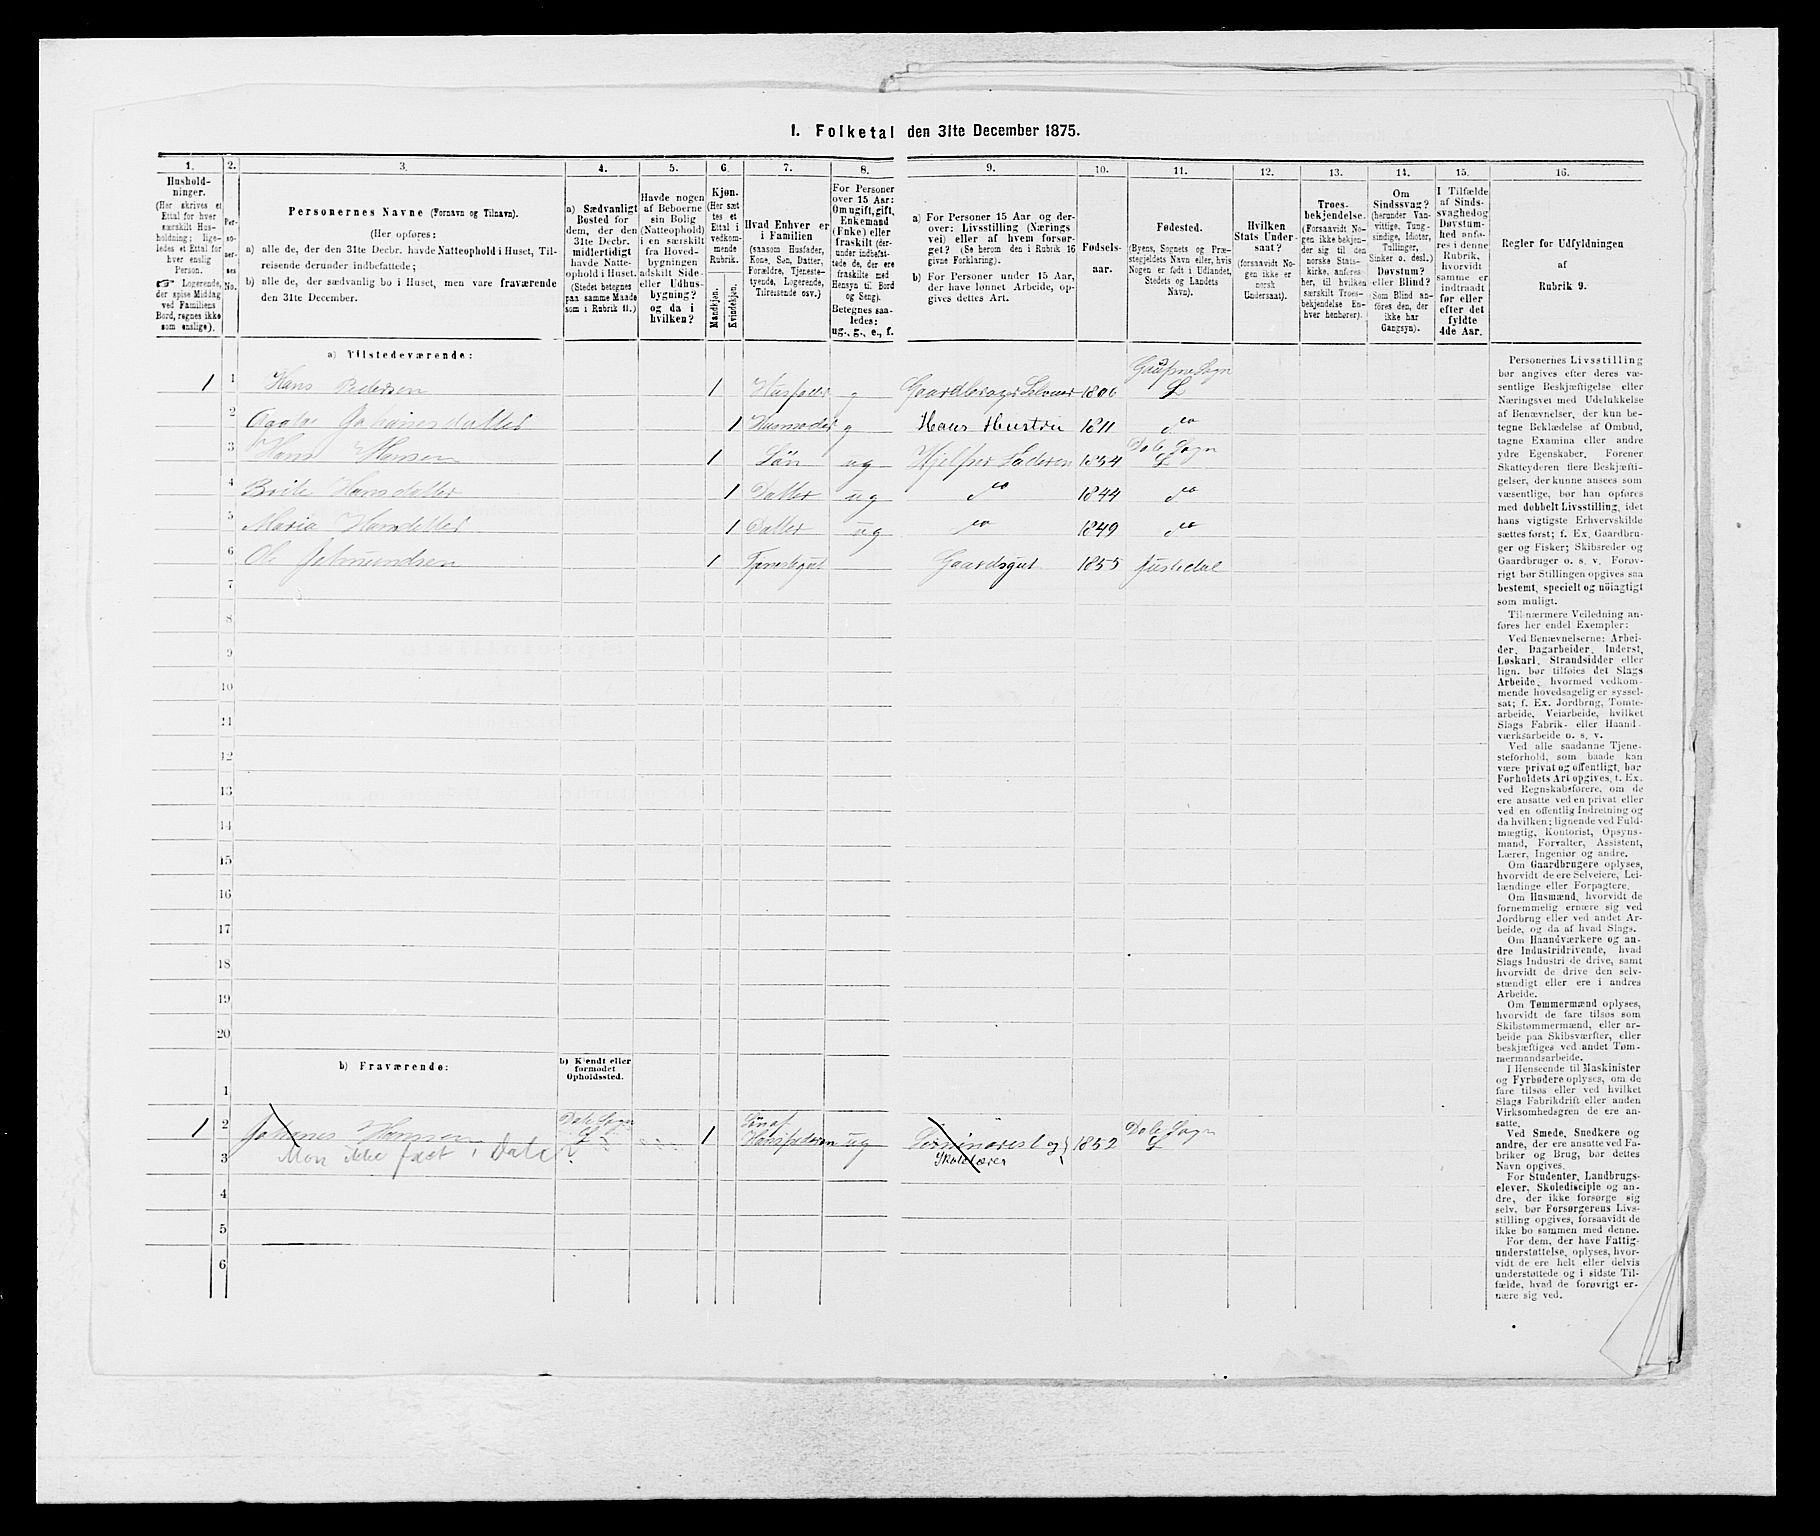 I. Folketal den 31te December 1875.
1.
Hushold-
ninger.
(Her skrives et
Ettal for hver
særskilt Hus-
holdning; lige-
ledes et Ettal for
hver enslig
Person.
☞ Logerende,
der spise Middag
ved Familiens
Bord, regnes ikke
som enslige).
2.
Per-
so-
ner-
nes
No.
3.
Personernes Navne (Fornavn og Tilnavn).
(Her opføres:
a) alle de, der den 31te Decbr. havde Natteophold i Huset, Til-
reisende derunder indbefattede;
b) alle de, der sædvanlig bo i Huset, men vare fraværende
den 31te December.
4.
a) Sædvanligt
Bosted for
dem, der den
31te Decbr.
midlertidigt
havde Natte-
ophold i Huset.
(Stedet betegnes
paa samme Maade
som i Rubrik 11.)
5.
Havde nogen
af Beboerne
sin Bolig
(Natteophold)
i en særskilt
fra Hoved-
bygningen
adskilt Side-
eller Udhus-
bygning?
og da i
hvilken?
6.
Kjøn.
(Her sæt
tes et
Ettal i
vedkom-
mende
Rubrik.
Mandkjøn.
Kvindekjøn.
7.
Hvad Enhver er
i Familien
(saasom Husfader,
Kone, Søn, Datter,
Forældre, Tjeneste-
tyende, Logerende,
Tilreisende osv.)
8.
For Personer
over 15 Aar:
Om ugift, gift,
Enkemand
(Enke) eller
fraskilt (der-
under indbefat-
tede de, der ere
fraskilte med
Hensyn til Bord
og Seng).
Betegnes saa-
ledes:
ug., g., e., f.
9.
a) For Personer 15 Aar og der-
over: Livsstilling (Nærings
vei) eller af hvem forsør-
get? (Se herom den i Rubrik 16
givne Forklaring).
b) For Personer under 15 Aar,
der have lønnet Arbeide, op-
gives dettes Art.
10.
Fødsels-
aar.
11.
Fødested.
(Byens, Sognets og Præ-
stegjeldets Navn eller, hvis
Nogen er født i Udlandet,
Stedets og Landets
Navn).
12.
Hvilken
Stats Under-
saat?
(forsaavidt No-
gen ikke er
norsk
Undersaat).
13.
Troes-
bekjendelse.
(Forsaavidt No-
gen ikke bekjen-
der sig til den
norske Stats-
kirke, anføres
her, til hvilken
særskilt Troes-
bekjendelse En-
hver henhører).
14.
Om
Sindssvag?
(herunder Van-
vittige, Tung-
sindige, Idioter,
Tullinger,
Sinker o. desl.)
Døvstum?
eller Blind?
(Som Blind an-
føres den, der
ikke har
Gangsyn).
15.
I Tilfælde
af Sinds-
svaghed og
Døvstum-
hed anfø-
res i denne
Rubrik,
hvorvidt
samme er
indtraadt
før eller
efter det
fyldte
4de Aar.
16.
Regler for Udfyldningen
af
Rubrik 9.
a) Tilstedeværende:
1 1 Hans Pedersen 1 Husfader g Gaardbruger Selveier 1806 Gaupne Sogn L
2 Johanesdatter 1 Husmoder g Hans Hustru 1811 do
3 Hans Hansen 1 Søn ug Hjelper Faderen 1854 Dale Sogn L
4 Brite Hansdatter 1 Datter ug do 1844 do
5 Maria Hansdatter 1 Datter ug do 1849 do
6 Ole 1 Tjenestegut Gaardsgut 1855 Justedal
7
8
9
10
11
12
13
14
15
16
17
18
19
20
b) Fraværende:
b) Kjendt eller
formodet
Opholdssted.
1
1 2 Johanes Hansen Dale Sogn L 1 Søn af Hans Pedersen ug Seminarist og Skolelærer 1852 Dale Sogn L
Mon ikke fast i Dale?
3
4
5
6
Personernes Livsstilling
bør angives efter deres væ-
sentlige Beskjæftigelse eller
Næringsvei med Udelukkelse
af Benævnelser, der kun be-
tegne Beklædelse af Ombud,
tagne Examina eller andre
ydre Egenskaber. Forener
Skatteyderen flere Beskjæfti-
gelser, der kunne ansees som
væsentlige, bør han opføres
med dobbelt Livsstilling, idet
hans vigtigste Erhvervskilde
sættes først; f. Ex. Gaardbru-
ger og Fisker; Skibsreder og
Gaardbruger o. s. v. Forøv-
rigt bør Stillingen opgives saa
bestemt, specielt og nöiagtigt
som muligt.
Til nærmere Veiledning an-
føres her endel Exempler:
Ved Benævnelserne: Arbei-
der, Dagarbeider, Inderst,
Løskarl, Strandsidder eller
lign. bør tilføies det Slags
Arbeide, hvormed vedkom-
mende hovedsagelig er syssel-
sat; f. Ex. Jordbrug, Tomte-
arbeide, Veiarbeide, hvilket
Slags Fabrik- eller Haand-
værksarbeide o. s. v.
Ved alle saadanne Tjene-
steforhold, som baade kan
være privat og offentligt, bør
Forholdets Art opgives, t. Ex.
ved Regnskabsførere, om de
ere ansatte ved en privat eller
ved en offentlig Indretning og
da hvilken; lignende ved Fuld-
mægtig, Kontorist, Opsyns-
mand, Forvalter, Assistent,
Lærer, Ingeniør og andre.
Om Gaardbrugere oplyses,
hvorvidt de ere Selveiere, Lei-
lændinge eller Forpagtere.
Om Husmænd, hvorvidt de
fornemmelig ernære sig ved
Jordbrug eller ved andet Ar-
beide, og da af hvad Slags.
Om Haandværkere og an-
dre Industridrivende, hvad
Slags Industri de drive, samt
hvorvidt de drive den selv-
stændigt eller ere i andres
Arbeide.
Om Tømmermænd oplyses,
hvorvidt de fare tilsøs som
Skibstømmermænd, eller ar-
beide paa Skibsværfter, eller
beskjæftiges ved andet Tøm-
mermandsarbeide.
I Henseende til Maskinister
og Fyrbødere oplyses, om de
fare tilsøs eller ved hvilket
Slags Fabrikdrift eller anden
Virksomhedsgren de ere an-
satte.
Ved Smede, Snedkere og
andre, der ere ansatte ved Fa-
briker og Brug, bør dettes
Navn opgives.
For Studenter, Landbrugs-
elever, Skoledisciple og an-
dre, der ikke forsørge sig
selv, bør Forsørgerens Livs-
stilling opgives, forsaavidt de
ikke bo sammen med denne.
For dem, der have Fattig-
understøttelse, oplyses, hvor-
vidt de ere helt eller delvis
understøttede og i sidste Til-
fælde, hvad de forøvrigt er-
nære sig ved.